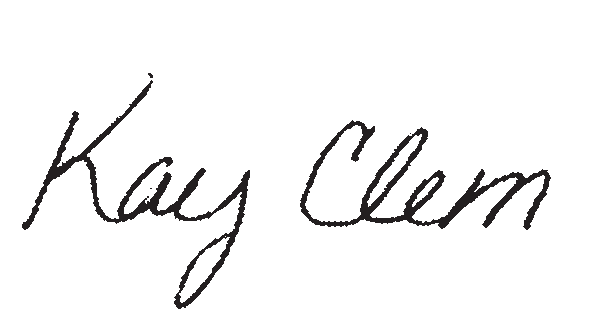 Kay Clem